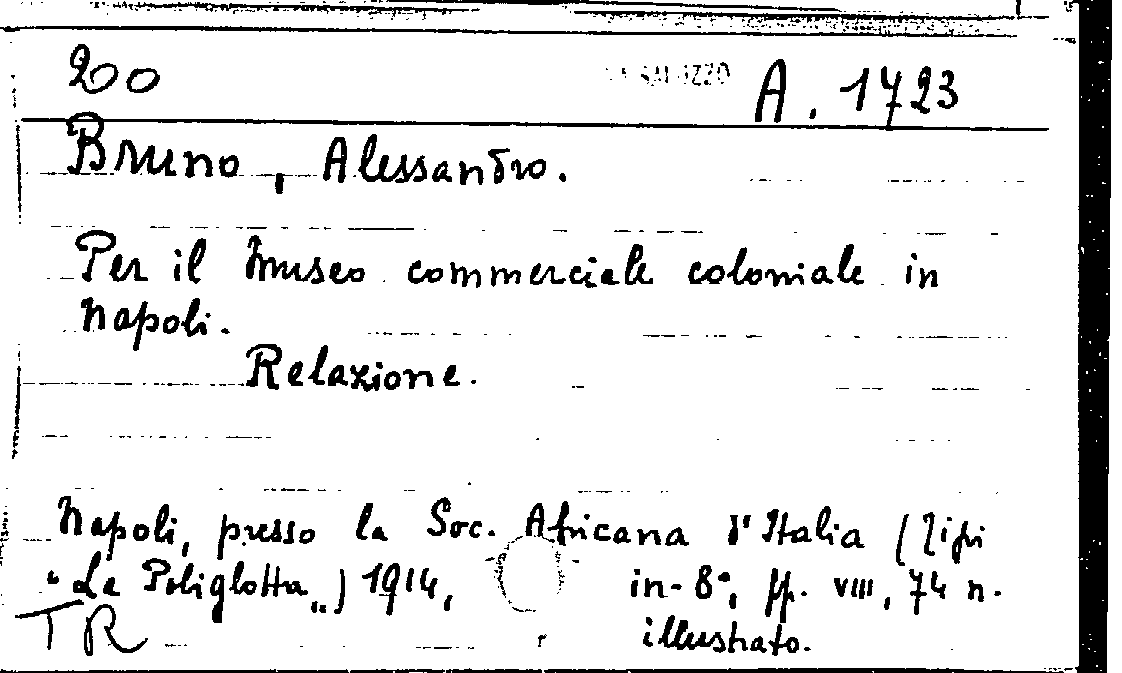 200 A. 1723
Bruno, Alessandro.
Per il Museo commerciale coloniale in
Napoli.
Relazione.
Napoli, presso la Soc. Africana d'Italia (Tipi
"La Poliglotta„) 1914, in-8°, pp. VIII, 74 n.
illustrato.
TR